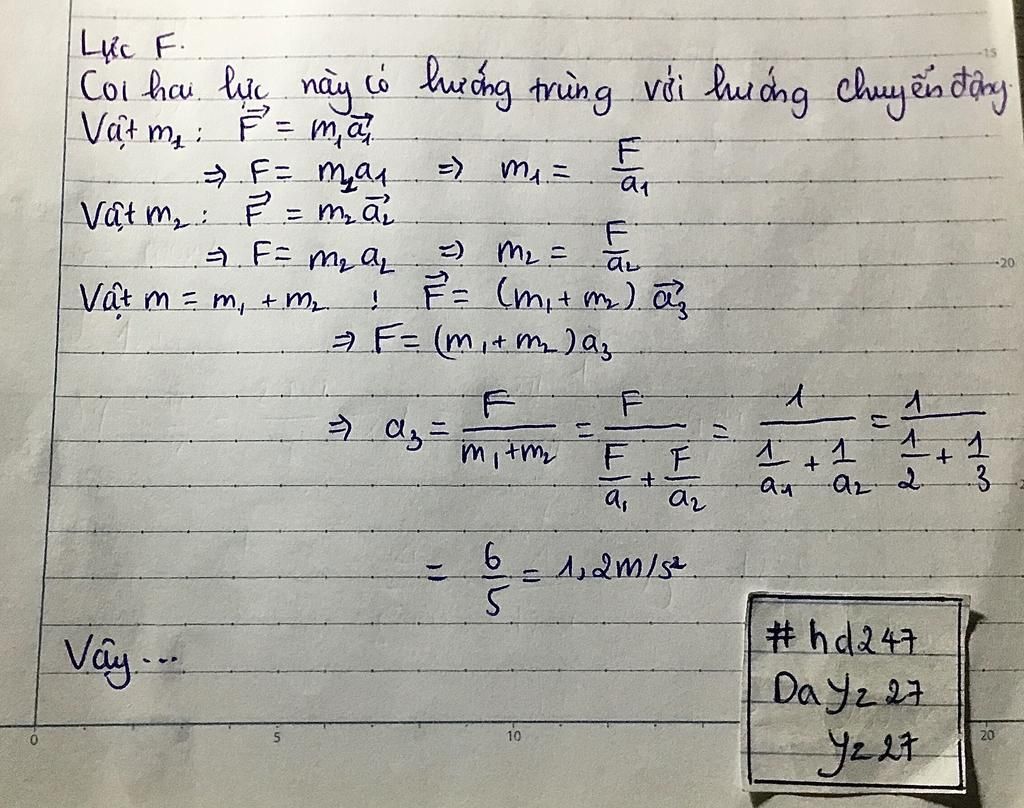 Lực F.
Coi hai lực này có hướng trùng với hướng chuyển động.
Vật m₁ : F⃗ = m₁a⃗₁
⇒ F = m₁a₁ ⇒ m₁ = F/a₁
Vật m₂ : F⃗ = m₂a⃗₂
⇒ F = m₂a₂ ⇒ m₂ = F/a₂
Vật m = m₁ + m₂ : F⃗ = (m₁ + m₂) a⃗₃
⇒ F = (m₁ + m₂)a₃
⇒ a₃ = F/(m₁+m₂) = F/(F/a₁ + F/a₂) = 1/(1/a₁ + 1/a₂) = 1/(1/2 + 1/3)
= 6/5 = 1,2m/s²
Vậy ...
#hd247
Dayz27
yz27
15
20
0 5 10 20